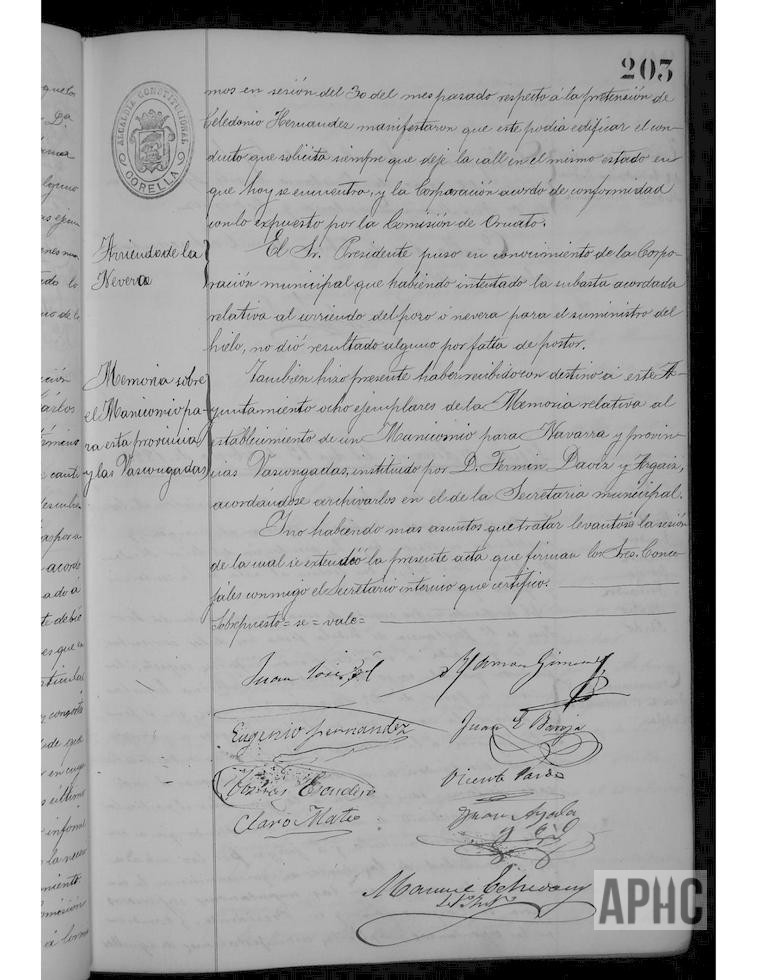 203
ALCALDIA CONSTITUCIONAL
CORELLA
mos en sesión del 30 del mes pasado respecto á la pretensión de
Celedonio Hernandez manifestaron que este podia edificar el con-
ducto que solicita siempre que deje la calle en el mismo estado en
que hoy se encuentra, y la Corporación acordó de conformidad
con lo expuesto por la Comisión de Ornato.
Arriendo de la
Nevera
El Sr. Presidente puso en conocimiento de la Corpo-
ración municipal que habiendo intentado la subasta acordada
relativa al arriendo del pozo ó nevera para el suministro del
hielo, no dió resultado alguno por falta de postor.
Memoria sobre
el Manicomio pa-
ra esta provincia
y las Vascongadas
Tambien hizo presente haber recibido con destino á este A-
yuntamiento ocho ejemplares de la Memoria relativa al
establecimiento de un Manicomio para Navarra y provin-
cias Vascongadas, instituido por D. Fermin Daoiz y Argaiz,
acordandose archivarlos en el de la Secretaria municipal.
Y no habiendo mas asuntos que tratar levantóse la sesión
de la cual se extendió la presente acta que firman los Sres. Conce-
jales conmigo el Secretario interino que certifico.
Sobrepuesto = se = vale =
Juan José Gil
Ramon Gimenez
Eugenio Fernandez
Juan E. Baroja
Escudero
Vicente
Claro Mateo
Juan Ayala
Manuel
APHC